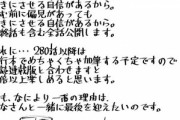 きにさせる自信があるから。
む前に偏見があっても
きにさせる自信があるから。
終話も含む全話公開します。
水に…280話以降は
行本でめちゃくちゃ加筆する予定ですので
終連載版と合わせますと
倍以上楽しめると思います。
も、なにより一番の理由は、
なさんと一緒に最後を迎えたいです。